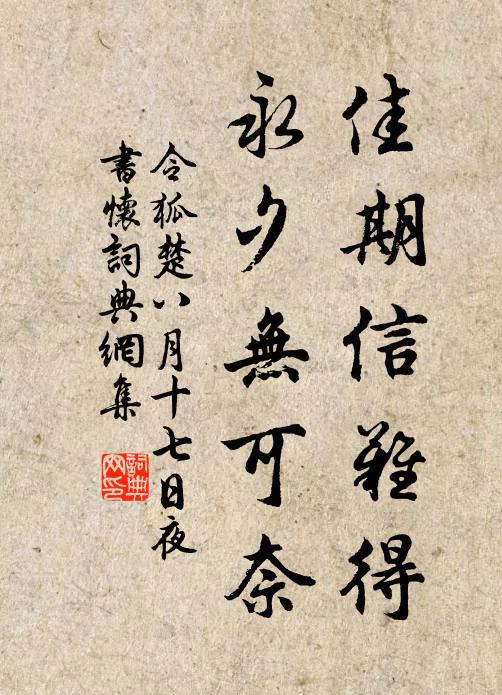 佳期信難得
永夕無可奈
令狐楚八月十七日夜
書懷詞典網集
詞典
网印